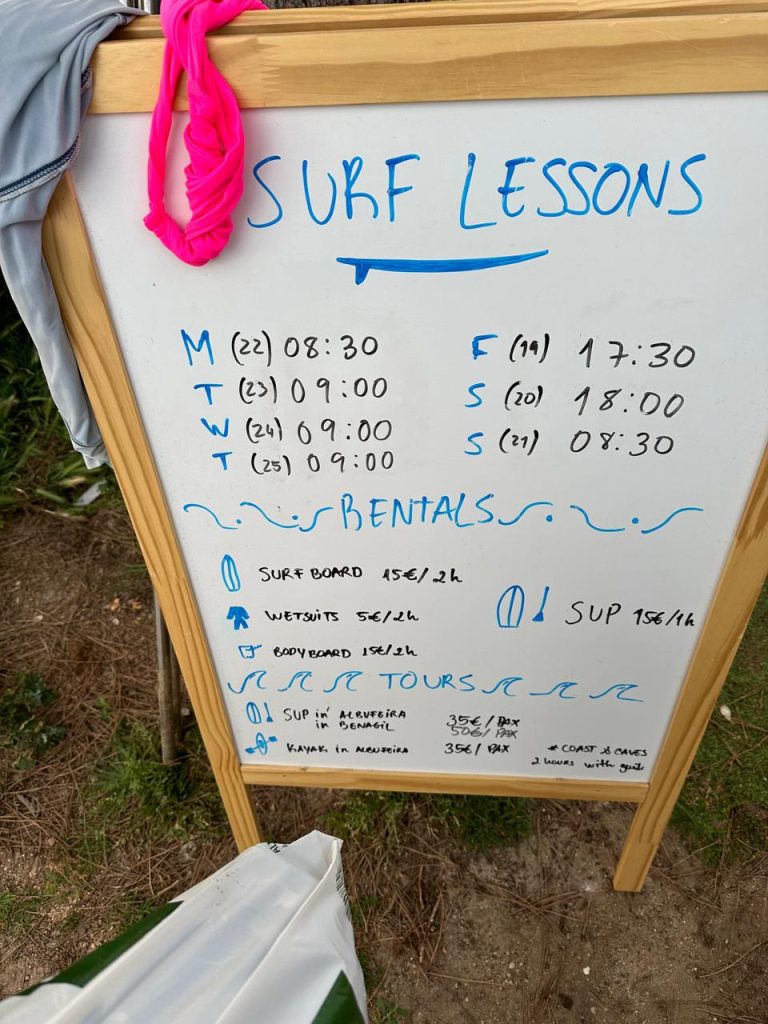 SURF LESSONS
M (22) 08:30
T (23) 09:00
W (24) 09:00
T (25) 09:00
F (19) 17:30
S (20) 18:00
S (21) 08:30
RENTALS
SURF BOARD 15€/2h
WETSUITS 5€/2h
BODYBOARD 15€/2h
SUP 15€/1h
TOURS
SUP in ALBUFEIRA 35€/PAX
in BENAGIL 50€/PAX
KAYAK in ALBUFEIRA 35€/PAX
* COAST & CAVES
2 hours with